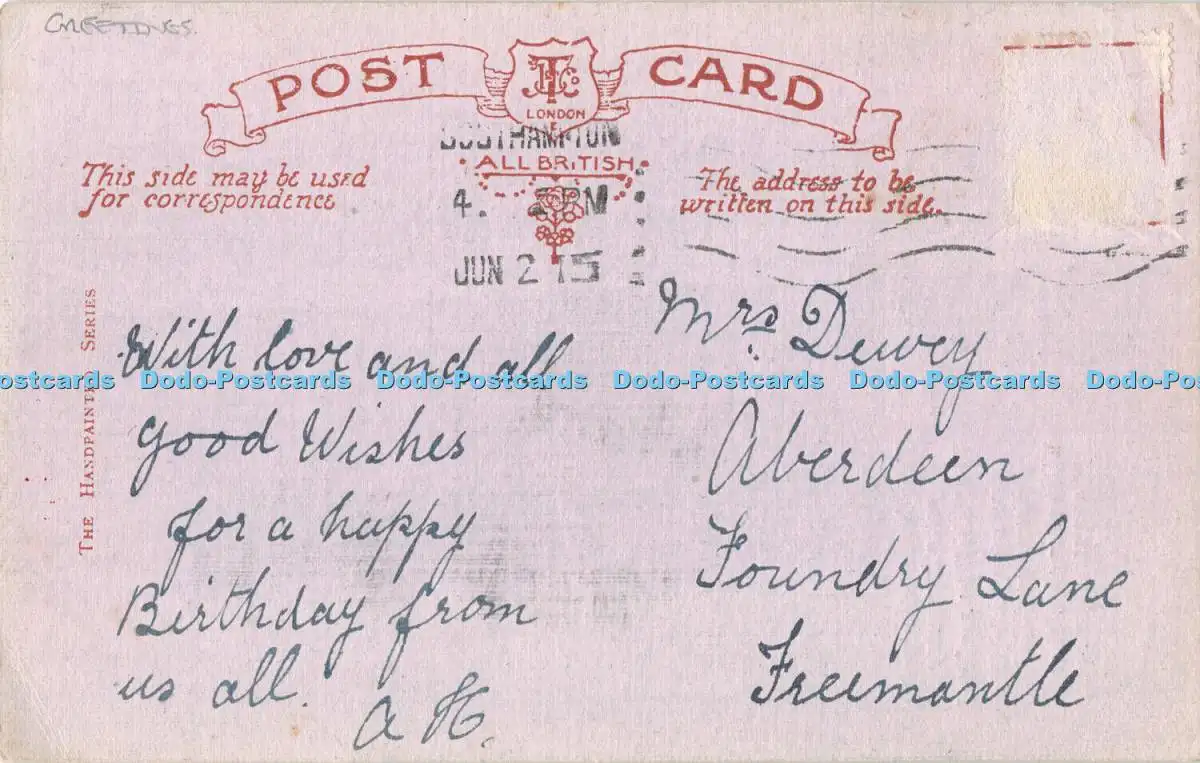 GREETINGS.
POST CARD
LONDON
SOUTHAMPTON
ALL BRITISH
This side may be used
for correspondence
The address to be
written on this side.
4.
JUN 2 15
THE HANDPAINTED SERIES
With love and all
good Wishes
for a happy
Birthday from
us all.
A H.
Mrs Dewey
Aberdeen
Foundry Lane
Freemantle
Dodo-Postcards Dodo-Postcards Dodo-Postcards Dodo-Postcards Dodo-Postcards Dodo-Postcards